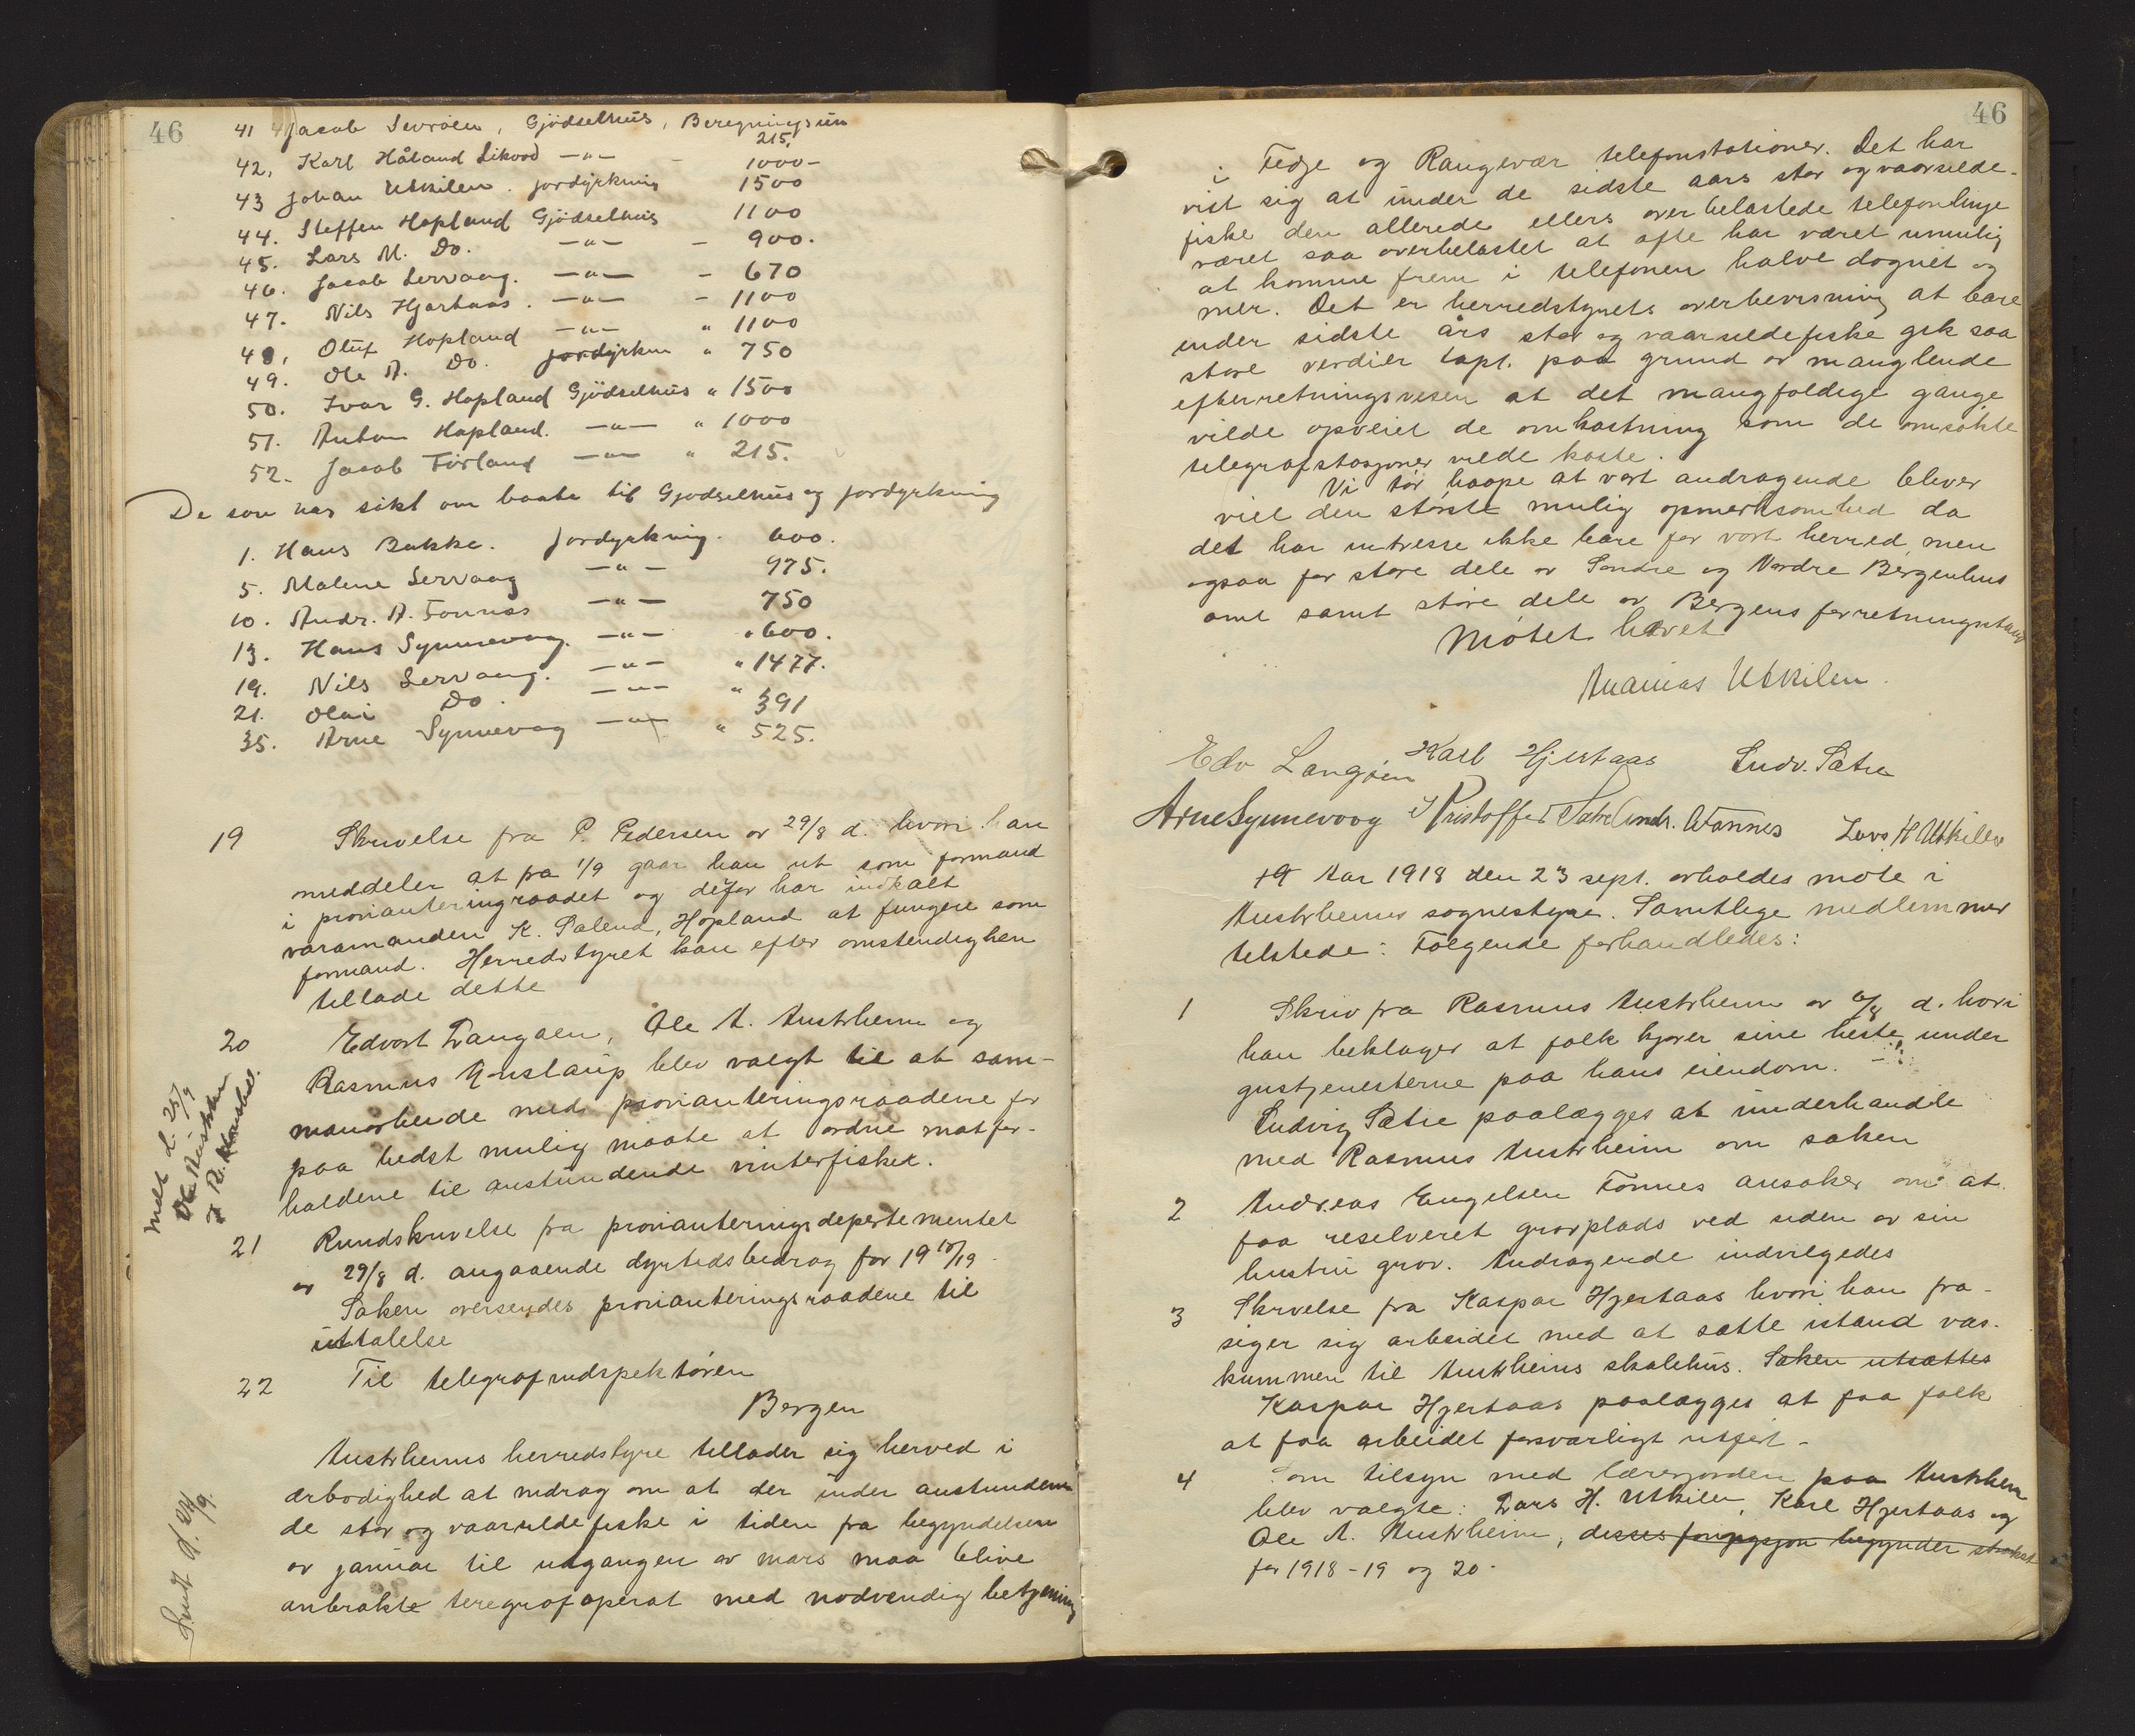 46
41 Jacob Sevröen, Gjödselhus, Beregningsun
215,
42, Karl Håland Likvod —"— - 1000-
43 Johan Utkilen. jordyrkning 1500
44. Steffen Hopland Gjödselhus 1100
45. Lars M. Do. —"— - 900.
46. Jacob Lervaag. —"— - 670
47. Nils Hjartaas. —"— - 1100
48, Oluf Hopland —"— " 1100
49. Ole A. Do. jordyrkn " 750
50. Ivar G. Hopland Gjödselhus " 1500
51. Anton Hopland. —"— " 1000
52. Jacob Förland —"— " 215.
De som har sökt om baate til Gjödselhus og jordyrkning
1. Hans Bakke. Jordyrkning. 600.
5. Malene Lervaag —"— 975.
10. Andr. A. Fonnes —"— 750
13. Hans Synnevaag. —"— " 600.
19. Nils Lervaag. —"— " 1477.
21. Olai Do —"— " 391
35. Arne Synnevag —"— " 525.
19 Skrivelse fra P. Pedersen av 29/8 d. hvori han
meddeler at fra 1/9 gaar han ut som formand
i provianteringraadet og defor har indkalt
varamanden K. Salend, Hopland at fungere som
formand. Herredstyret kan efter omstendighen
tillade dette
20 Edvart Langøen, Ole A. Austrheim og
Rasmus Konslaup blev valgt til at sam-
menarbeide med provianteringsraadene for
paa bedst mulig maate at ordne matfor-
holdene til anstundende vinterfisket.
meld d. 25/9
21 Rundskrivelse fra provianteringsdepartementet
av 29/8 d. angaaende dyrtidsbedrag for 1918/19
Saken oversendes provianteringsraadene til
uttalelse
22 Til telegrafindspektören
Bergen
Austrheims herredstyre tillader sig herved i
ærbodighed at ndrag om at der under anstunden
de stor og vaarsildefiske i tiden fra begyndelsen
av januar til utgangen av mars maa blive
anbrakte teregrafaperat med nodvendig betjening
Sendt d. 24/9.
46
i Fedje og Rangevær telefonstationer. Det har
vist sig at under de sidste aars stor og vaarsilde-
fiske den allerede ellers overbelastede telefonlinje
været saa overbelastet at ofte har været umulig
at komme frem i telefonen halve dognet og
mer. Det er herredstyrets overbevisning at bare
under sidste års stor og vaarsildefiske gik saa
store verdier tapt. paa grund av manglende
efterretningsvesen at det mangfoldige gange
vilde opveiet de omkostning som de omsøkte
telegrafstasjoner vilde koste.
Vi tør haape at vort andragende blever
viet den største mulig opmerksomhed da
det har intresse ikke bare for vort herred, men
ogsaa for store dele av Søndre og Nordre Bergenhus
amt samt store dele av Bergens forretningsstand
Møtet hævet
Ananias Utkilen.
Edv Langøen Karl Hjertaas Ludv. Sætre
Arne Synnevaag Kristoffer Sætre Andr. Wonnes Lars H Utkilen
19 Aar 1918 den 23 sept. avholdes møte i
Austrheims sognestyre. Samtlige medlemmer
telstede: Følgende forhandledes:
1 Skriv fra Rasmus Austrheim av 6/8 d. hvori
han beklager at folk kjører sine heste under
gustjenesterne paa hans eiendom. —
Ludvig Sætre paalægges at underhandle
med Rasmus Austrheim om saken
2 Andreas Engelsen Fonnes ansøker om at
faa reselveret gravplads ved siden av sin
hustru grav. Andragende indvilgedes
3 Skrvelse fra Kaspar Hjertaas hvori han fra-
siger sig arbeidet med at sætte istand vas-
kummen til Austrheims skolehus. Saken utsættes
Kaspar Hjertaas paalægges at faa folk
at faa arbeidet forsvarligt utført -
4 Som tilsyn med lærerjorden paa Austrheim
blev valgte: Lars H. Utkilen, Karl Hjertaas og
Ole A. Austrheim, disses fongsjon begynder straks
for 1918 - 19 og 20.